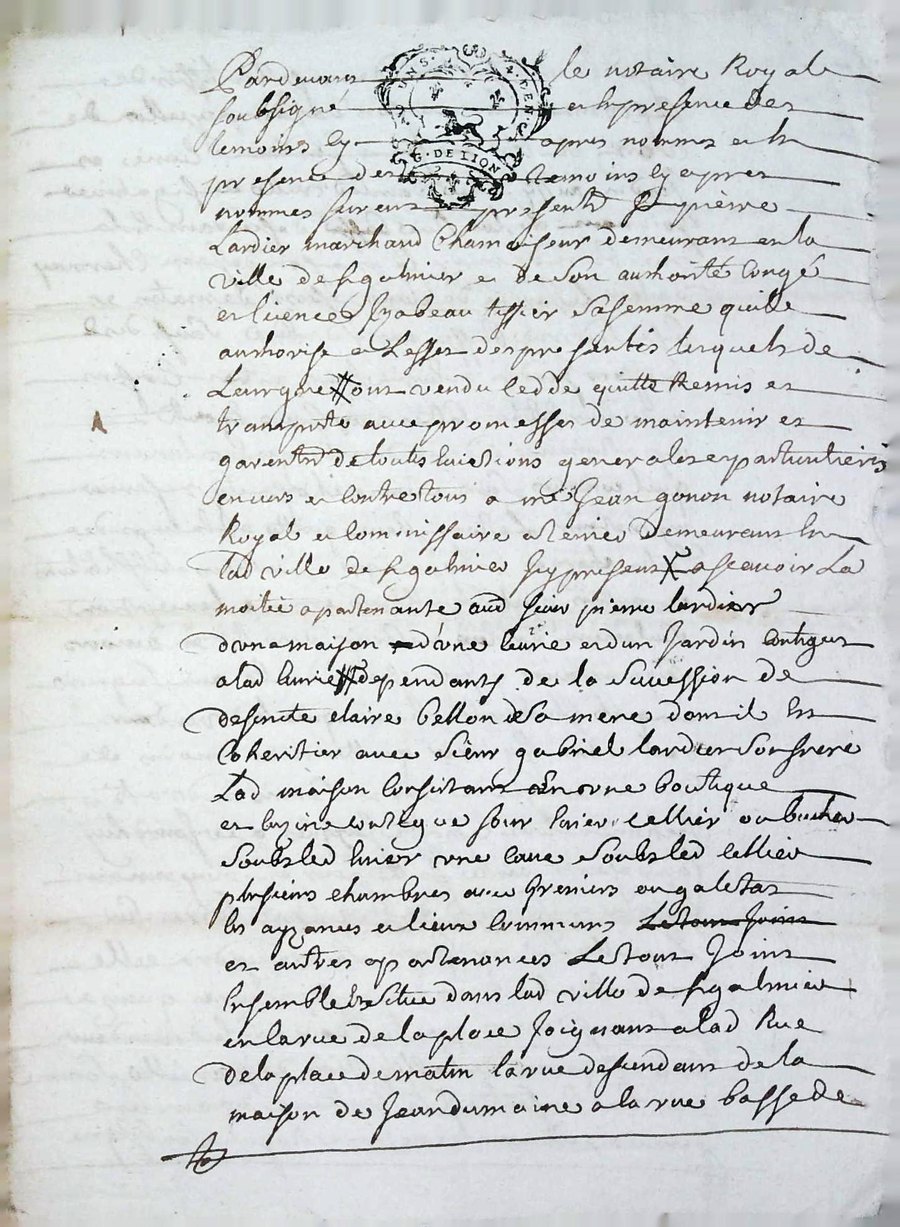 Pardevant le notaire Royal
soubsigné et en presence des
temoins cy apres nommes et en
presence des temoins cy apres
nommes furent presents Sr pierre
Lardier marchand Chamoiseur demeurant en la
ville de st galmier et de son authorité congé
et licence Izabeau tissier sa femme quille
authorise a Leffet des presentes lesquels de
Leur gre ont vendu cedde quitte Remis et
transporte avec promesses de maintenir et
garentir de touttes evictions generales et particulieres
envers et contre tous a me Jean gonon notaire
Royal et commissaire a terrier demeurant en
lad ville de st galmier Icy present ascavoir La
moitié apartenante aud sieur pierre lardier
dune maison dune ecurie et dun Jardin contigus
a lad ecurie dependants de la succession de
defunte claire bellon sa mere dont il est
Coheritier avec sieur gabriel lardier son frere
Lad maison consistant en une boutique
et cuizine contigue sour evier cellier ou bucher
soubs led evier une cave soubs led cellier
plusieurs chambres avec greniers ou galetas
les ayzances et lieux communs Le tout Joint
et autres apartenances Le tout Joint
Ensemble et situé dans lad ville de st galmier
en la rue de la place Joignant a lad Rue
de la place de matin la rue descendant de la
maison de Jean dumaine a la rue basse de